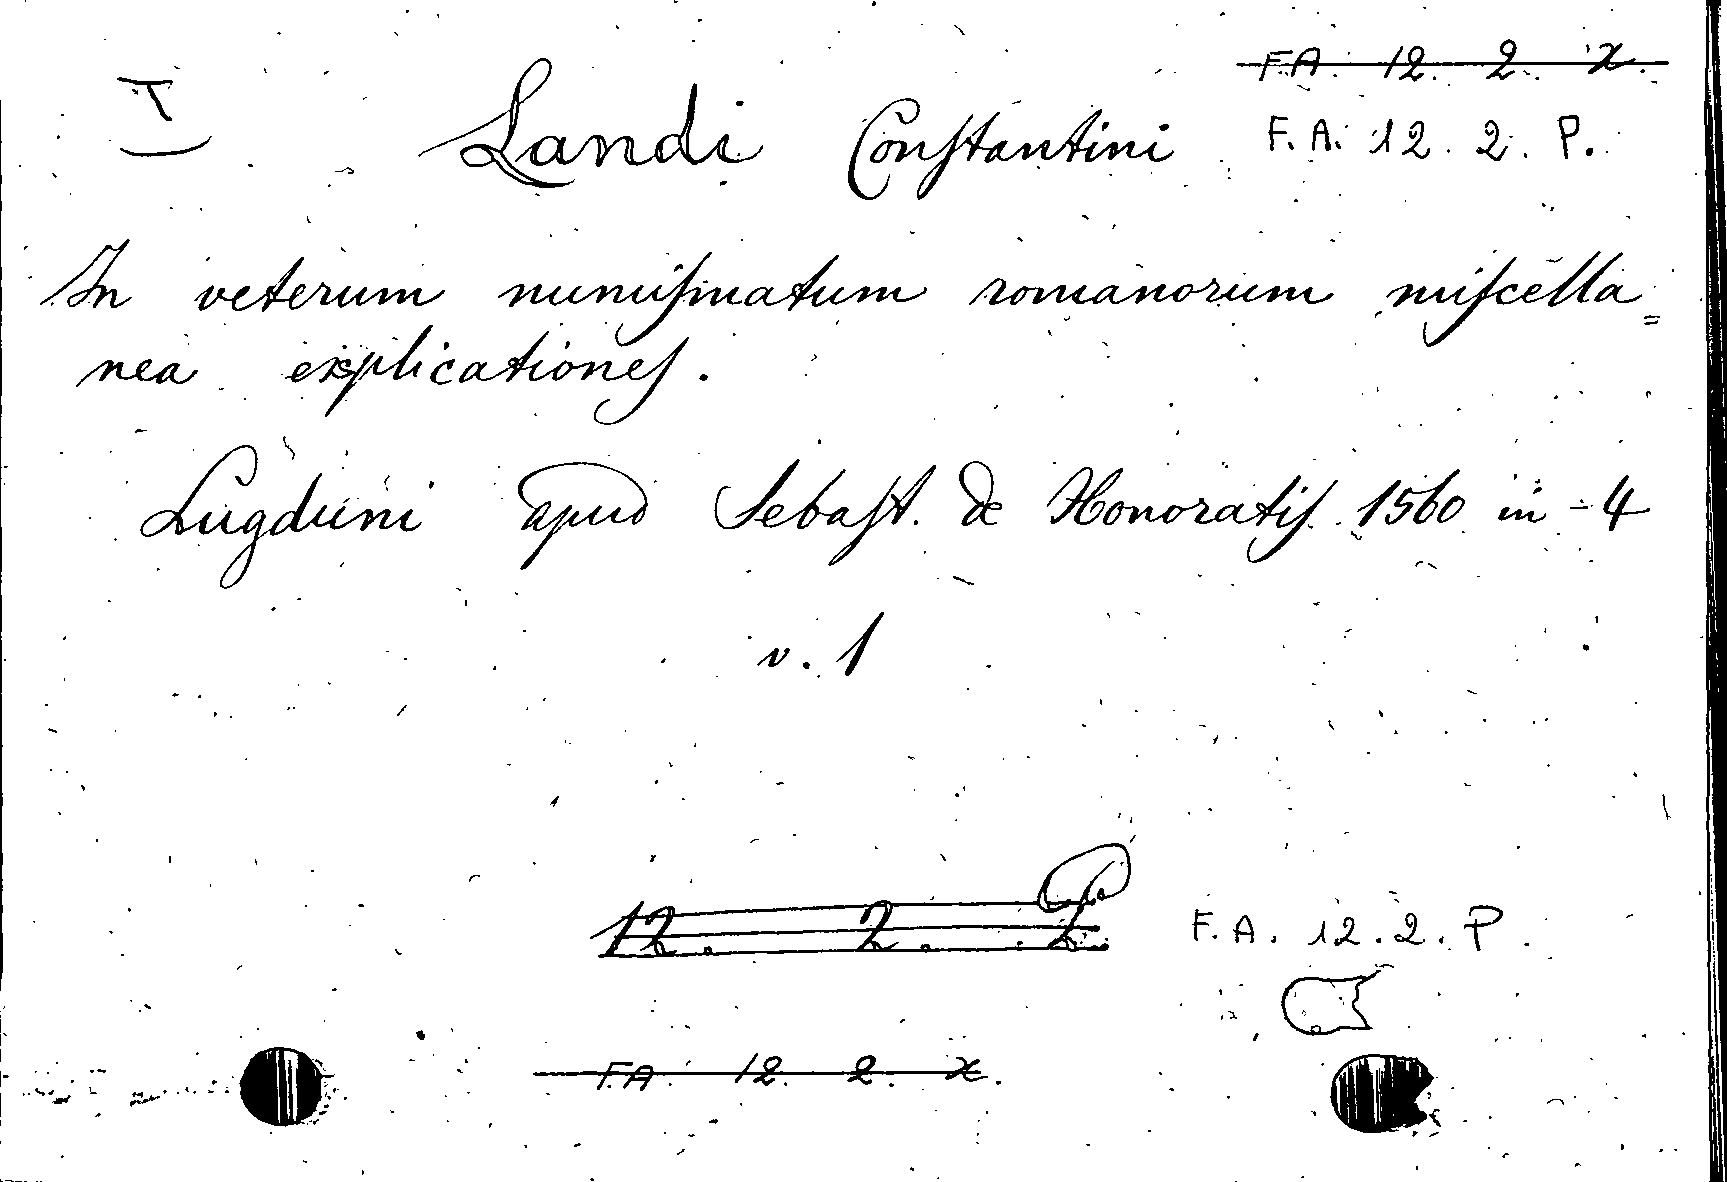 F.A. 12. 2. X.
I Landi Constantini F.A. 12. 2. P.
In veterum numiſmatum romanorum miſcella=
nea explicationeſ.
Lugduni apud Sebaſt. de Honoratiſ. 1560 in-4
v. 1
12. 2. F.A. 12. 2. P.
F.A. 12. 2. X.